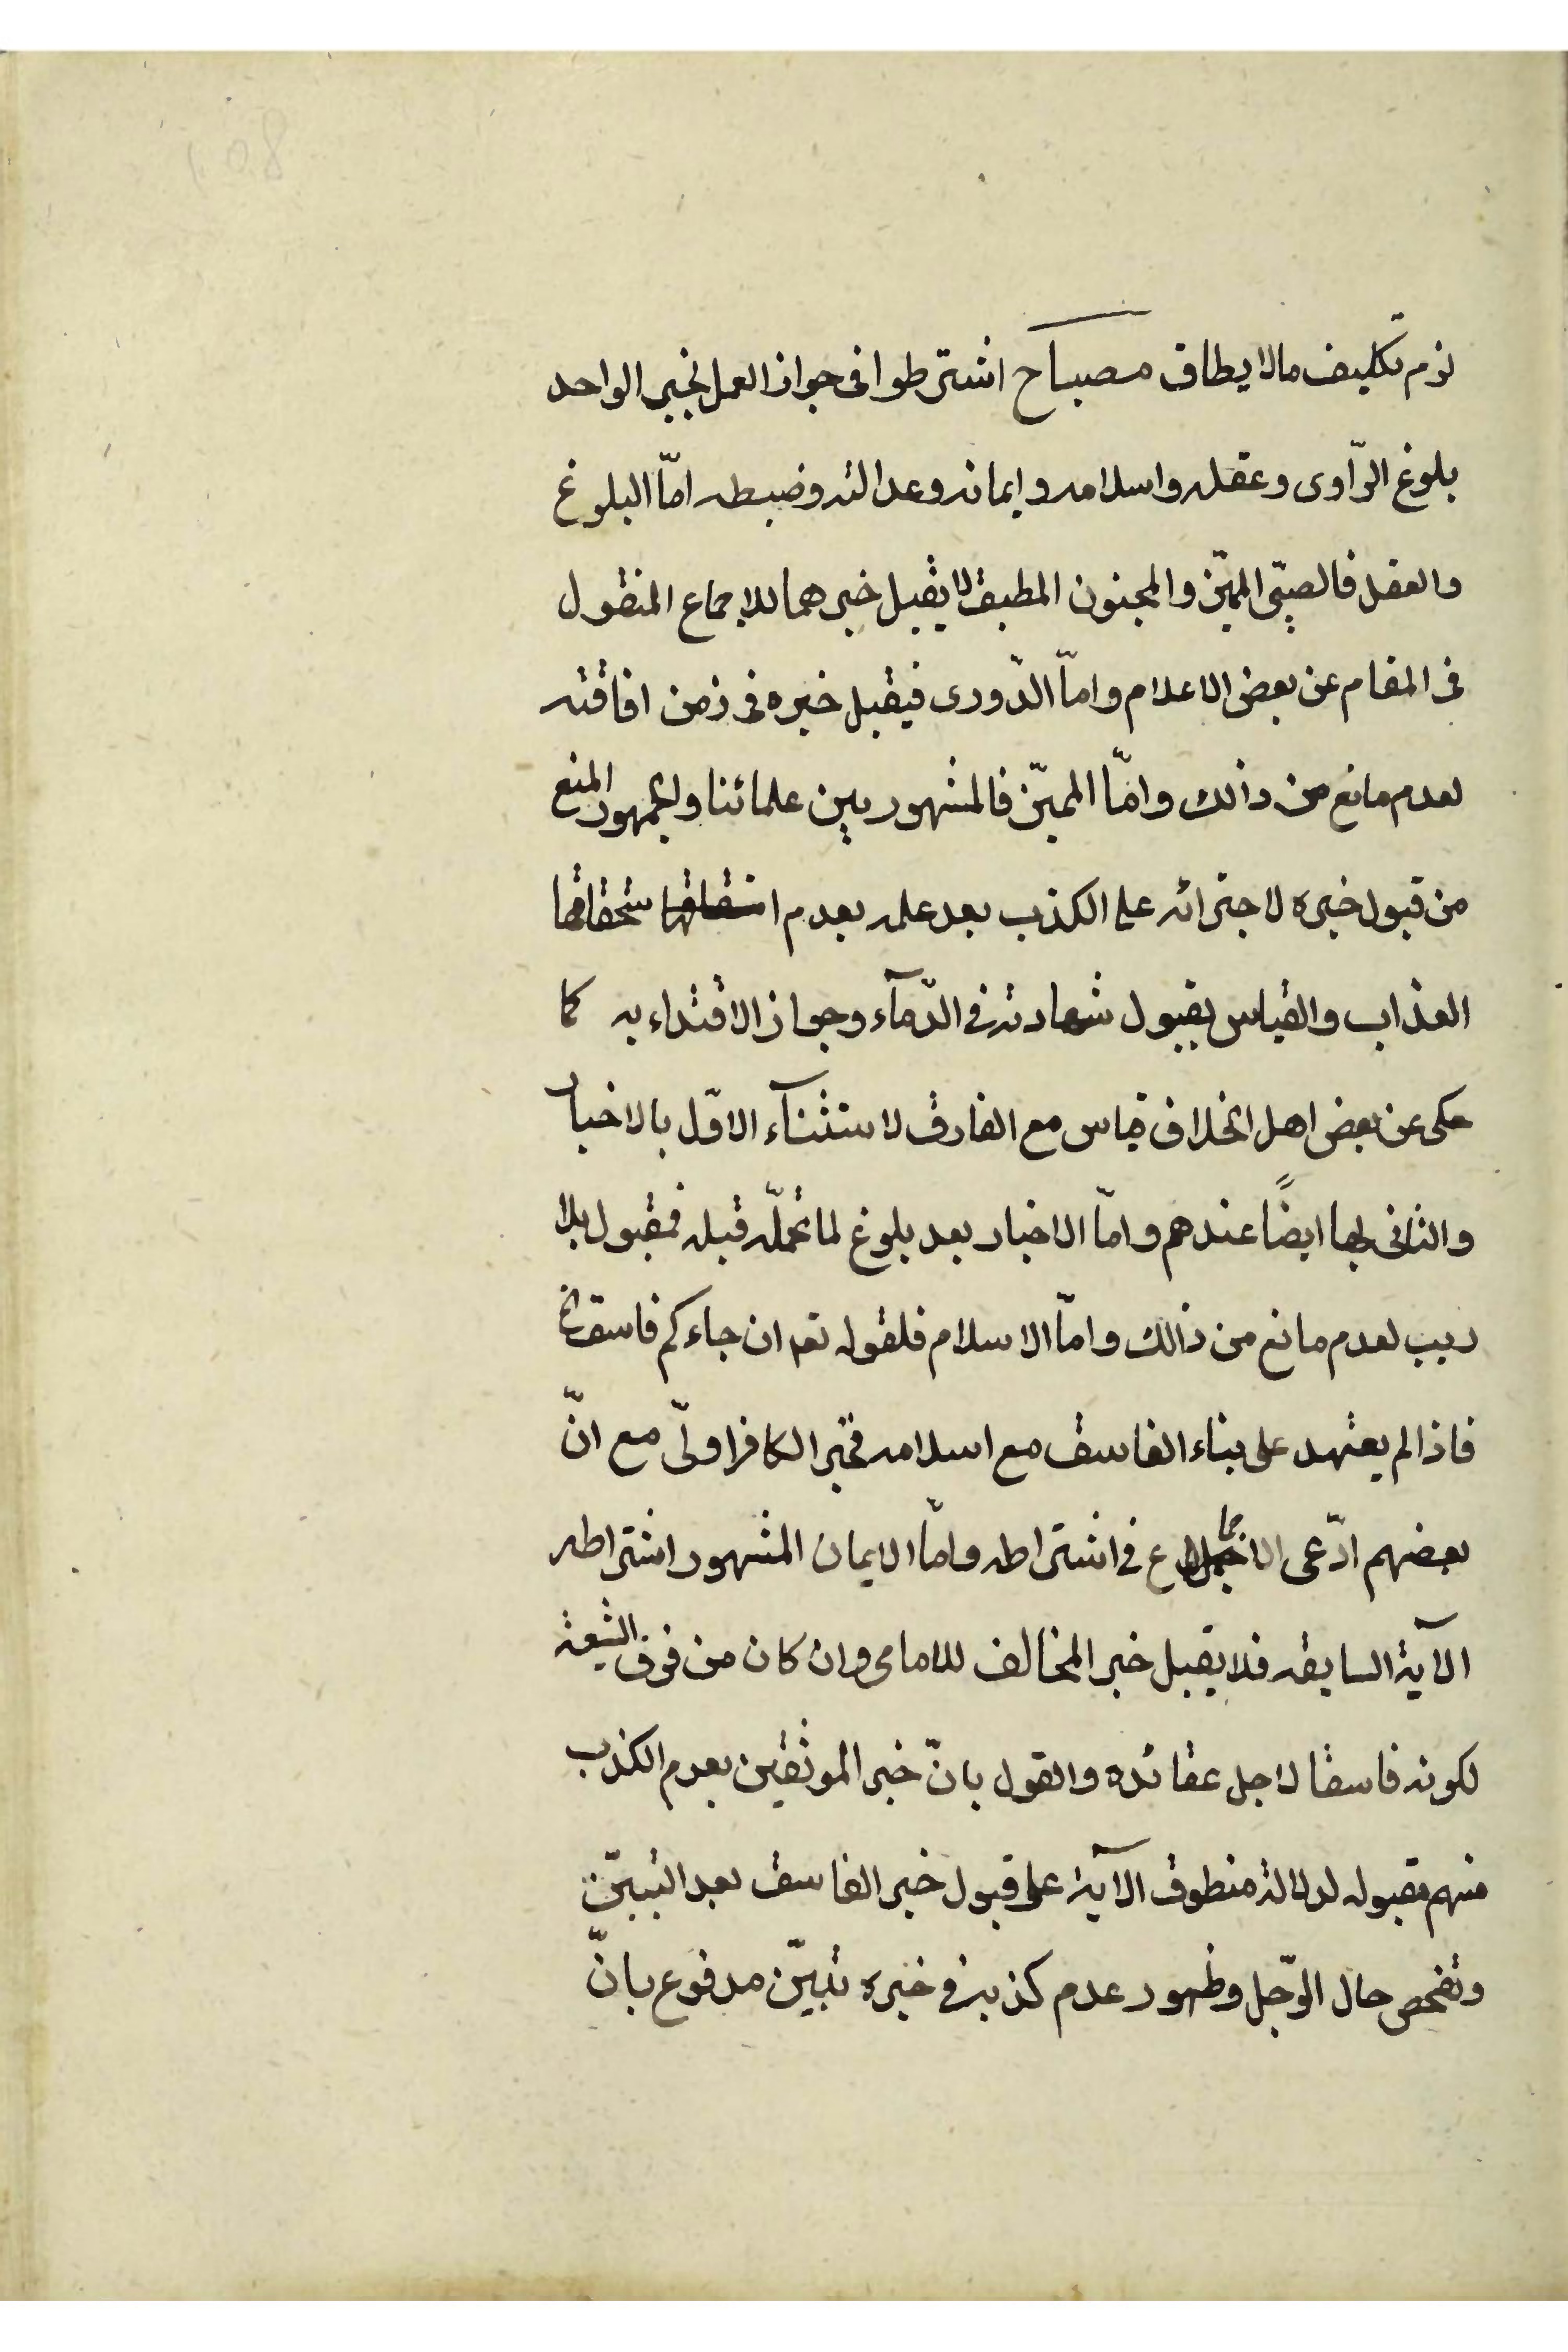 لزم تكليف مالا يطاق مصباح اشترطوا فى جواز العمل بخبر الواحد
بلوغ الرّاوى وعقله واسلامه وايمانه وعدالته وضبطه امّا البلوغ
والعقل فالصبّى المميّز والمجنون المطبق لا يقبل خبرهما للاجماع المنقول
فى المقام عن بعض الاعلام وامّا الدّورى فيقبل خبره فى زمن افاقته
لعدم مانع من ذالك وامّا المميّز فالمشهور بين علمائنا والجمهور المنع
من قبول خبره لاجترائه على الكذب بعد علمه بعدم استحقاقها
العذاب والقياس بقبول شهادته فى الدّمآء وجواز الاقتداء به كما
حكى عن بعض اهل الخلاف قياس مع الفارق لاستثنآء الاوّل بالاخبار
والثانى بها ايضًا عندهم وامّا الاخبار بعد بلوغ لما تحمّله قبله فمقبول بلا
ريب لعدم مانع من ذالك وامّا الاسلام فلقوله تعه ان جاءكم فاسق الخ
فاذا لم يعتمد على بناء الفاسق مع اسلامه فخبر الكافر اولّى مع انّ
بعضهم ادّعى الاجماع فى اشتراطه وامّا الايمان المشهور اشتراطه
الآية السابقه فلا يقبل خبر المخالف للامامى وان كان من فرق الشيعة
لكونه فاسقا لاجل عقائده والقول بانّ خبر الموثقين بعدم الكذب
منهم مقبوله لدلالة منطوق الآية على قبول خبر الفاسق بعد التبيّن
وتفحص حال الرّجل وظهور عدم كذبه فى خبره تبيّن مدفوع بانّ